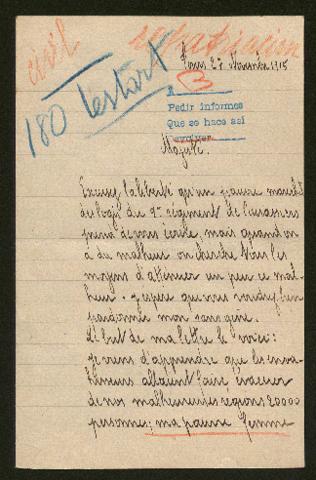 civil
repatriation
180 Testart
Tours 27 Novembre 1915
Pedir informes
Que se hace así
Devolver
Majesté.
Excusez la liberté qu'un pauvre marechal
des logis du 2e régiment de Cuirassiers
prend de vous écrire, mais quand on
a du malheur on cherche tous les
moyens d'atténuer un peu ce mal-
heur. J'espère que vous voudrez bien
pardonner mon sans gêne.
Le but de ma lettre le voici:
Je viens d'apprendre que les enva-
hisseurs allaient faire évacuer
de nos malheureuses régions 20000
personnes; ma pauvre femme